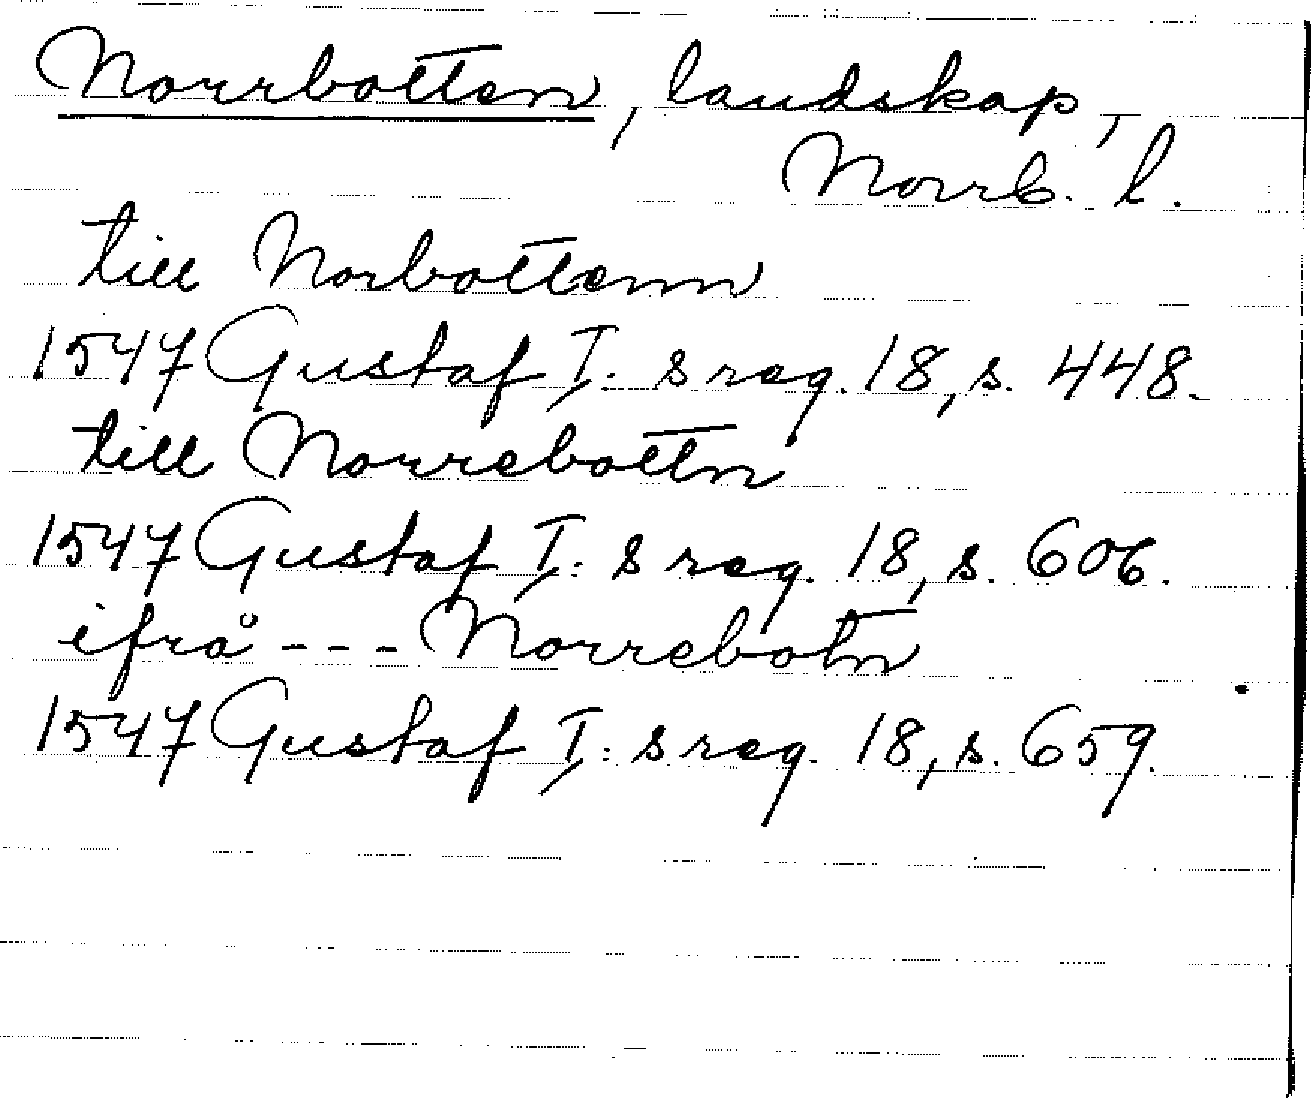 Norrbotten, landskap,
Norrb. l.
till Norbottenn
1547 Gustaf I:s reg. 18, s. 448.
till Norrebottn
1547 Gustaf I:s reg. 18, s. 606.
ifrå --- Norrebotn
1547 Gustaf I:s reg. 18, s. 659.